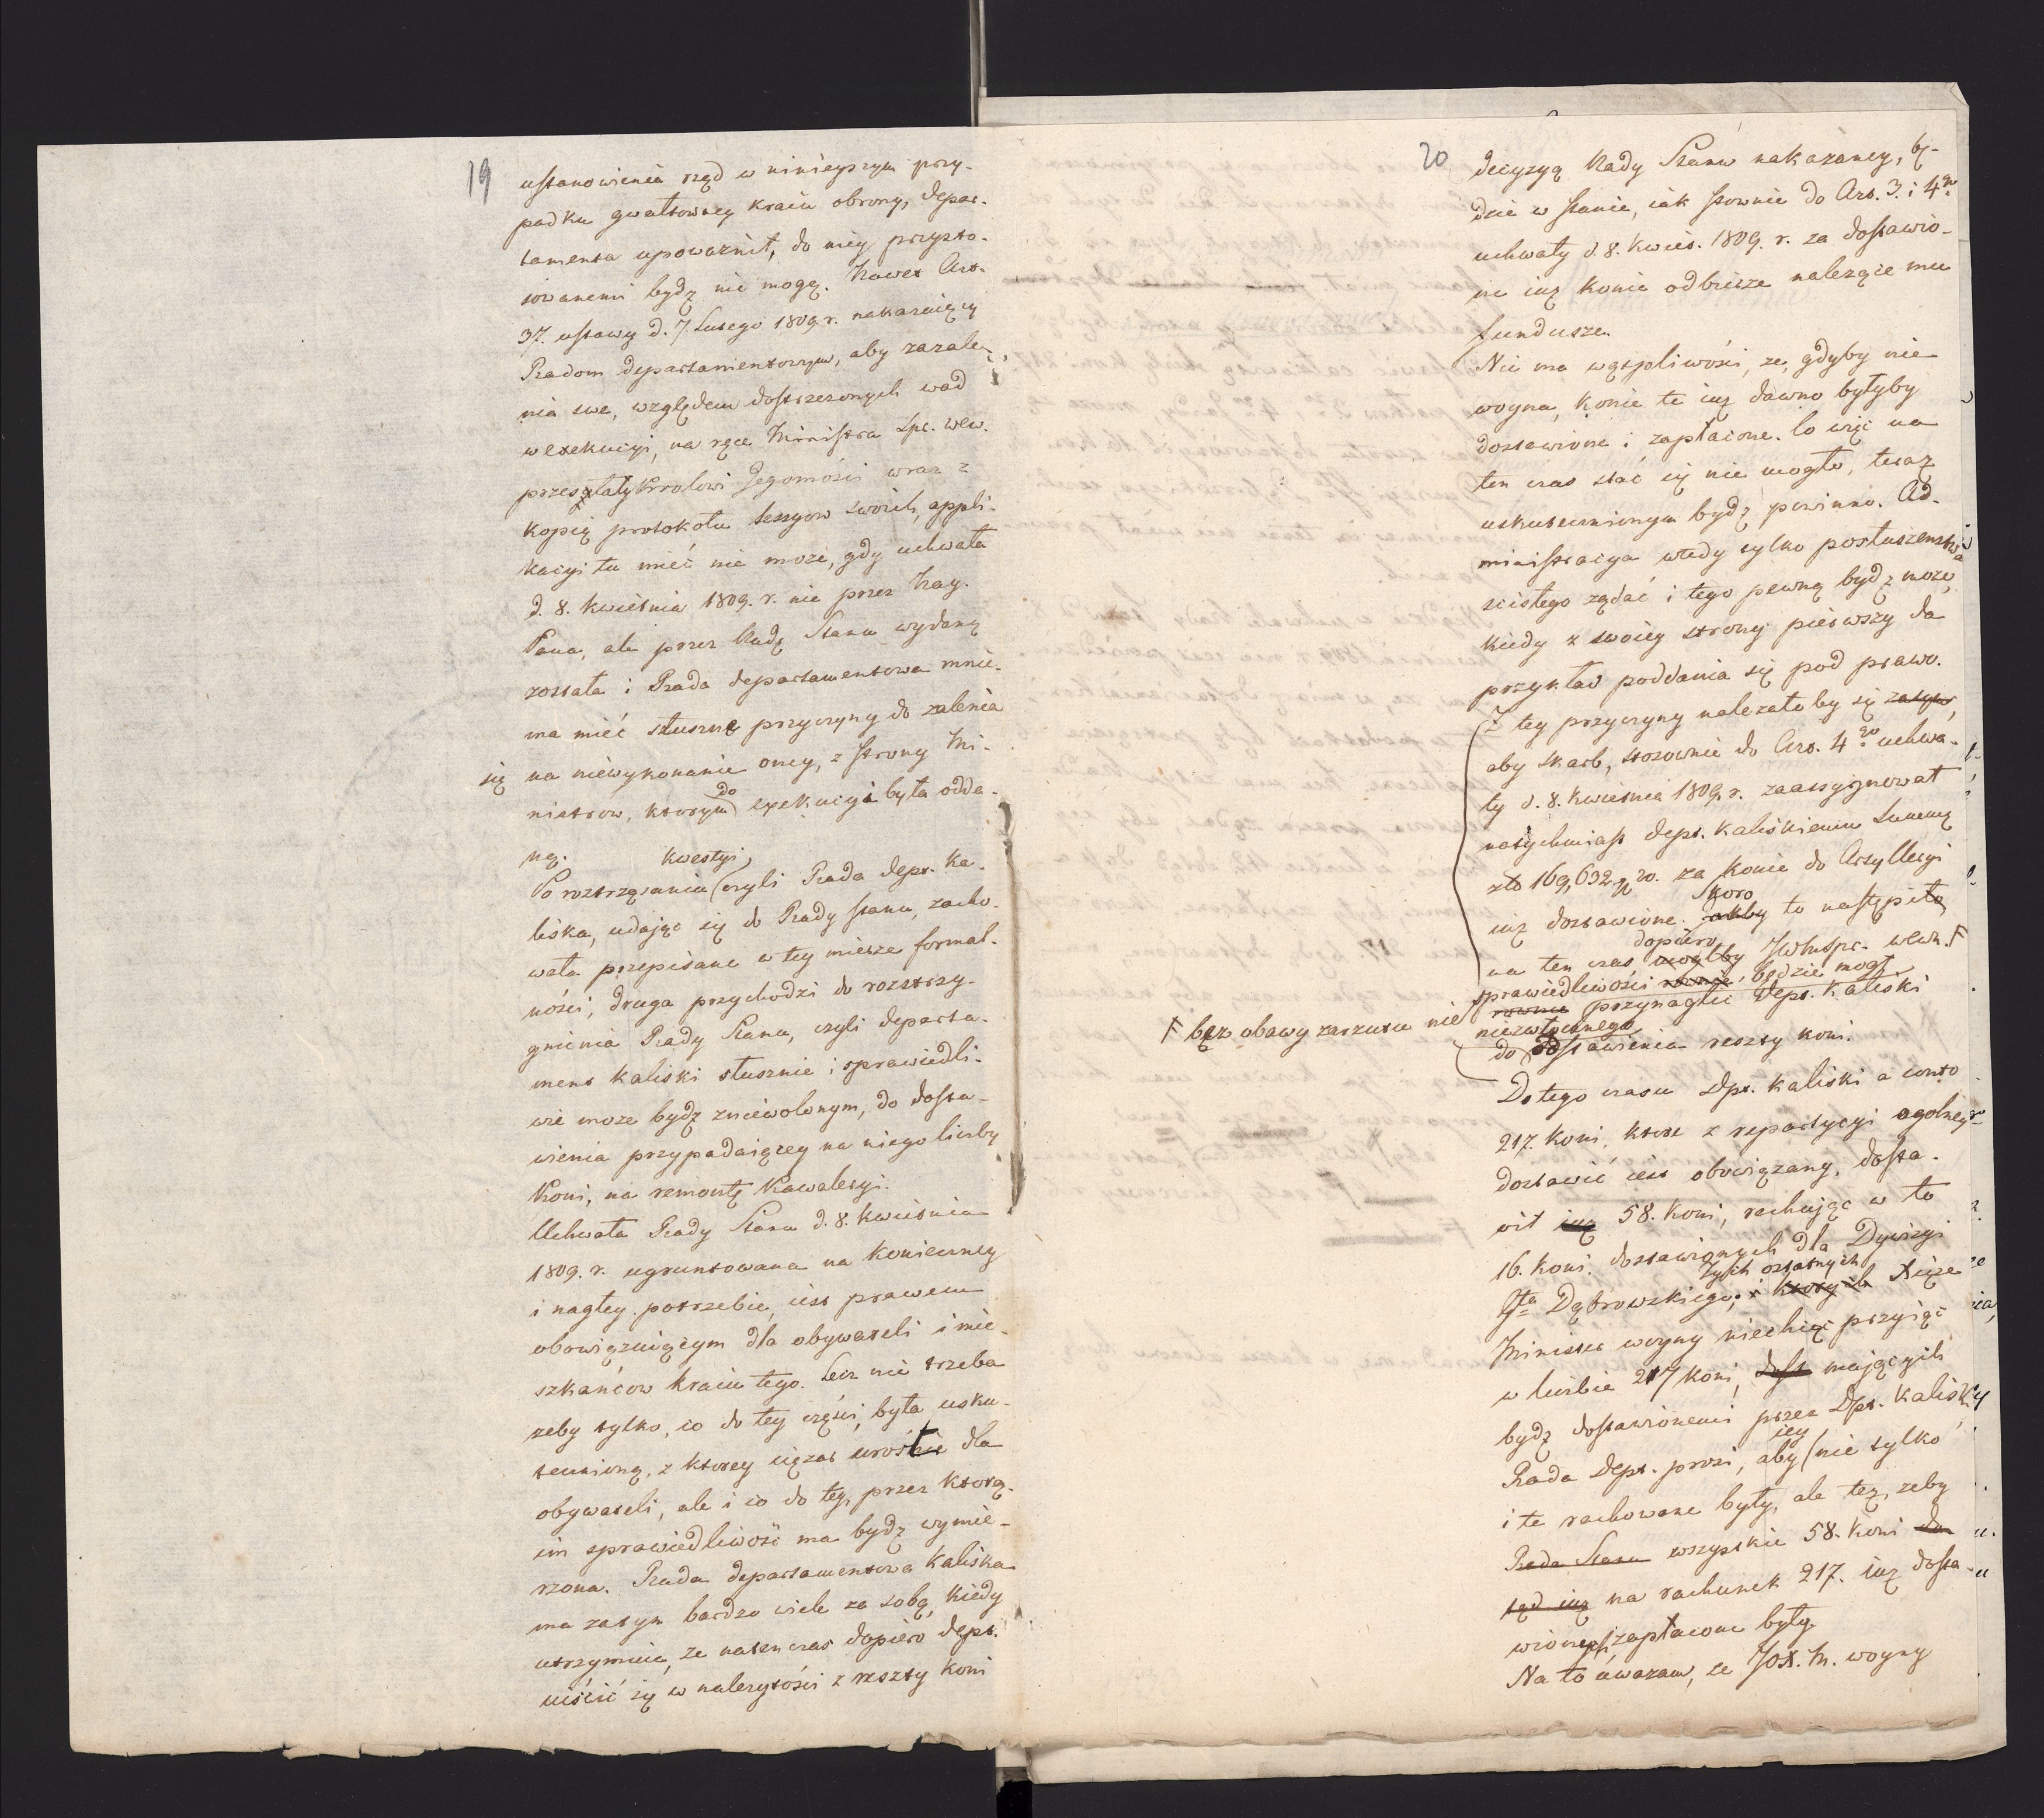 19
ustanowienia rząd w ninieyszym przy-
padku gwałtowney kraiu obrony, depar-
tamenta upoważnił, do niey przysto-
sowanemi bydz nie mogą. Nawet Art.
37. ustawy d. 7. Lutego 1809. r. nakazuiący
Radom departamentowym, aby zazale-
nia swe, względem dostrzezonych wad
w exekucyi, na ręce Ministra Spr. wew.
przesyłały Krolowi Jegomości wraz z
kopią protokołu sessyow swoich, appli-
kacyi tu mieć nie może, gdy uchwała
d. 8. kwietnia 1809. r. nie przez Nay.
Pana, ale przez Radę Stanu wydaną
została i Rada departamentowa mnie-
ma mieć słuszne przyczyny do zalenia
się na niewykonanie oney, z strony Mi-
nistrow, ktorym do exekucyi była odda-
ną.
Po roztrząsaniu kwestyi, czyli Rada depr. Ka-
liska, udając się do Rady stanu, zacho-
wała przepisane w tey mierze formal-
ności, druga przychodzi do rozstrzy-
gnienia Rady Stanu, czyli departa-
ment kaliski słusznie i sprawiedli-
wie może bydz zniewolonym, do dosta-
wienia przypadaiącey na niego liczby
Koni, na remontę Kawaleryi.
Uchwała Rady Stanu d. 8. kwietnia
1809. r. ugruntowana na konieczney
i nagłey potrzebie, iest prawem
obowiązuiącym dla obywateli i mie-
szkańcow kraiu tego. Lecz nie trzeba
zeby tylko, co do tey części, była usku-
tecznioną, z ktorey ciężar urośnie dla
obywateli, ale i co do tey, przez ktorą
im sprawiedliwość ma bydz wymie-
rzona. Rada departamentowa kaliska
ma zatym bardzo wiele za sobą, kiedy
utrzymuie, ze natenczas dopiero depr.
uiścić się w nalezytości z reszty koni
20
decyzyą Rady Stanu nakazaney, bę-
dzie w stanie, iak stownie do Art. 3. i 4go
uchwały d. 8. kwiet. 1809. r. za dostawio-
ne iuz konie odbierze należące mu
fundusze.
Nie ma wątpliwości, ze, gdyby nie
woyna, konie te iuz dawno byłyby
dostawione i zapłacone. Co więc na
ten czas stać się nie mogło, teraz
uskutecznionym bydz powinno. Ad-
ministracya wtedy tylko posłuszeństwa
scisłego ządać i tego pewną bydz może,
kiedy z swoiey strony pierwszy da
przykład poddania się pod prawo.
Z tey przyczyny nalezałoby się zatym,
aby skarb, stosownie do Art. 4go uchwa-
ły d. 8. kwietnia 1809. r. zaassygnował
natychmiast depr. kaliskiemu summę
złt 169,632 gr 20. za konie do Artylleryi
iuz dostawione. Skoro to nastąpiło,
na ten czas dopiero JW Mspr. wewn. F
F bez obawy zarzutu nie
sprawiedliwości będzie mogł
przynaglić depr. kaliski
niezwłocznego
do odstawienia reszty koni.
Do tego czasu depr. kaliski a conto
217. koni, ktore z repartycyi ogolney
dostawić iest obowiązany, dosta-
wił iuz 58. koni, rachując w to
16. koni dostawionych dla Dywizyi
Gła Dąbrowskiego; i ktorych tych ostatnich Xiąże
Minister woyny niechąc przyiąć
w liczbie 217 koni, mających
bydz dostawionemi przez Dpr. kaliski,
Rada depr. prosi, aby iey nie tylko
i te rachowane były, ale tez, zeby
Rada Stanu wszystkie 58. koni
na rachunek 217. iuz dosta-
wione, zapłacone były.
Na to uwazam, ze JOX. M. woyny